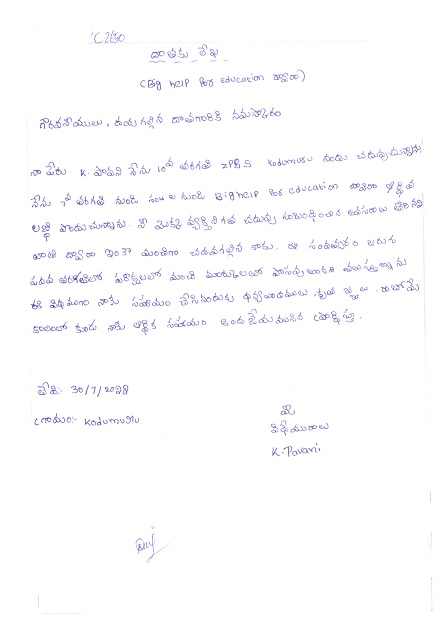 C2150
దాతకు లేఖ
(Big help for education ద్వారా)
గౌరవనీయులు, దయగల్గిన దాతగారికి నమస్కారం
నా పేరు K. పావని నేను 10వ తరగతి ZPHS Kodumuru నందు చదువుచున్నాను.
నేను 7వ తరగతి నుండి నుండి Bighelp for education ద్వారా ఆర్థిక
లబ్ధి పొందుచున్నాను. నా యొక్క వ్యక్తిగత చదువు సంబంధించిన అవసరాలు
ద్వారా ఇంకా మంచిగా చదవగల్గిన నాకు. ఈ సంవత్సరం జరుగు
పదవ తరగతిలో పరీక్షలలో మంచి మార్కులతో పాసవ్వాలని
ఈ విధముగా నాకు సహాయం చేసినందుకు ధన్యవాదములు కృతజ్ఞలు. రాబోయే
కాలంలో కూడు నాకు ఆర్థిక సహాయం అందజేయమని
తేది:- 30/7/2022
గ్రామం:- Kodumuru
మీ
విధేయురాలు
K. Pavani